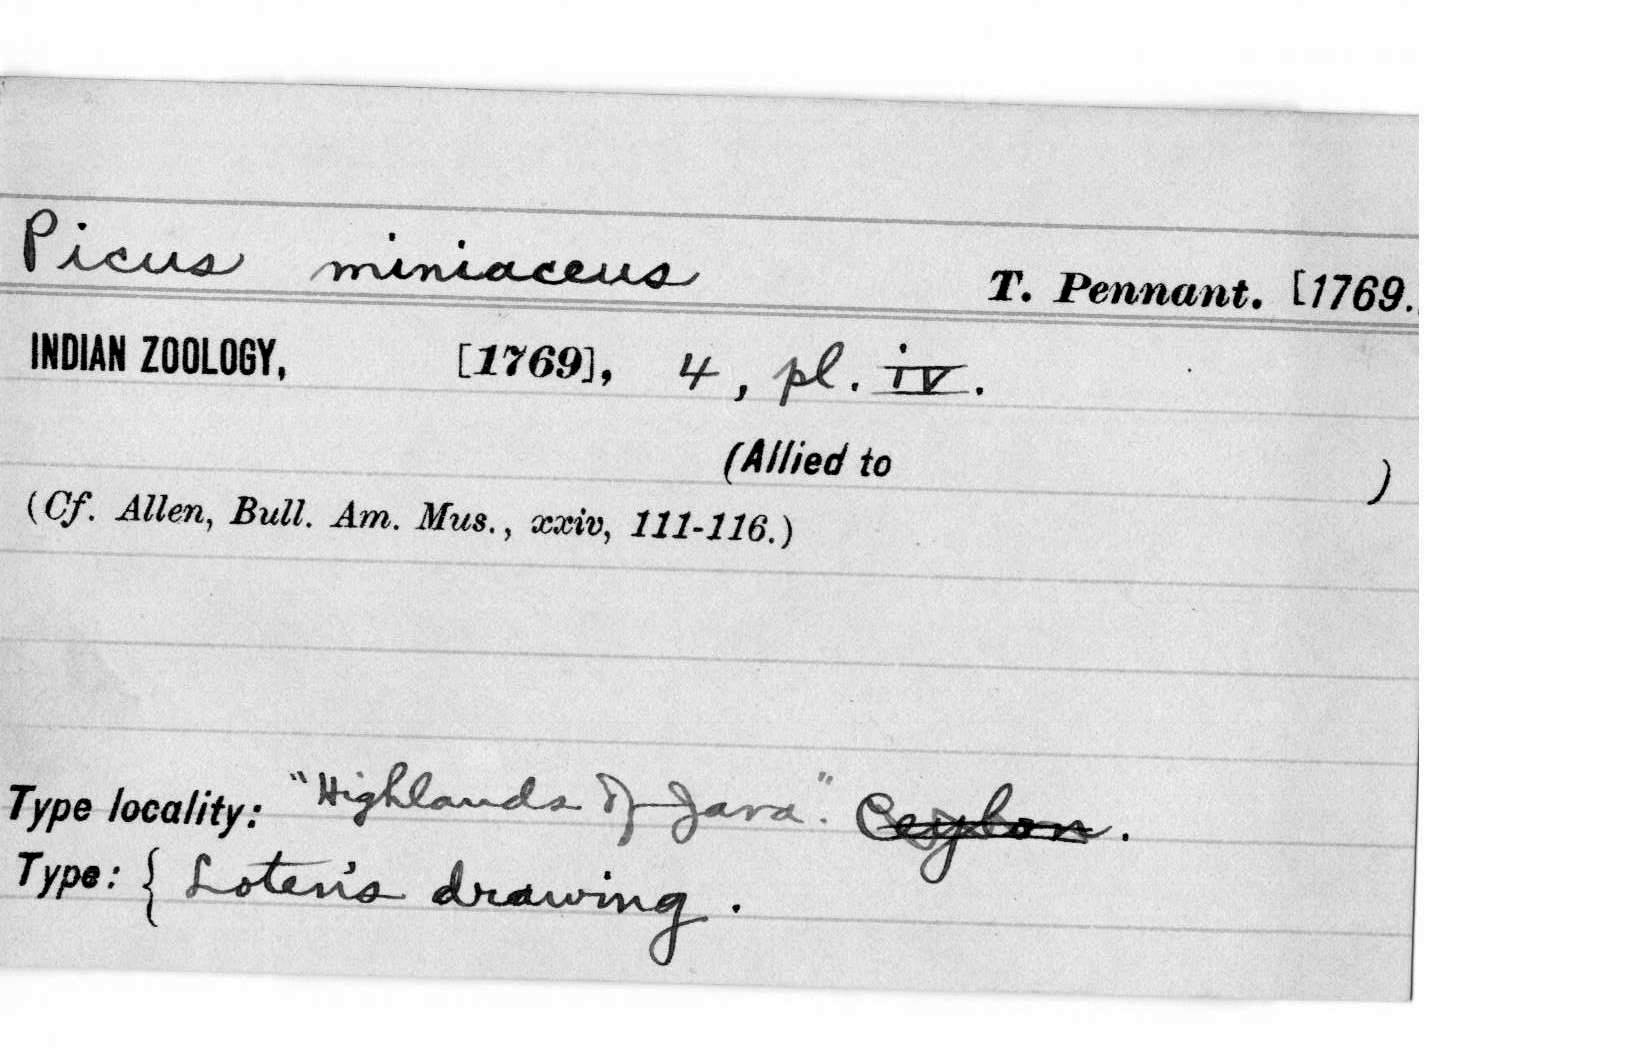 Picus miniaceus T. Pennant. [1769.
INDIAN ZOOLOGY, [1769], 4, pl. iv.
(Allied to )
(Cf. Allen, Bull. Am. Mus., xxiv, 111-116.)
Type locality: "Highlands of Java". Ceylon.
Type: { Loten's drawing.